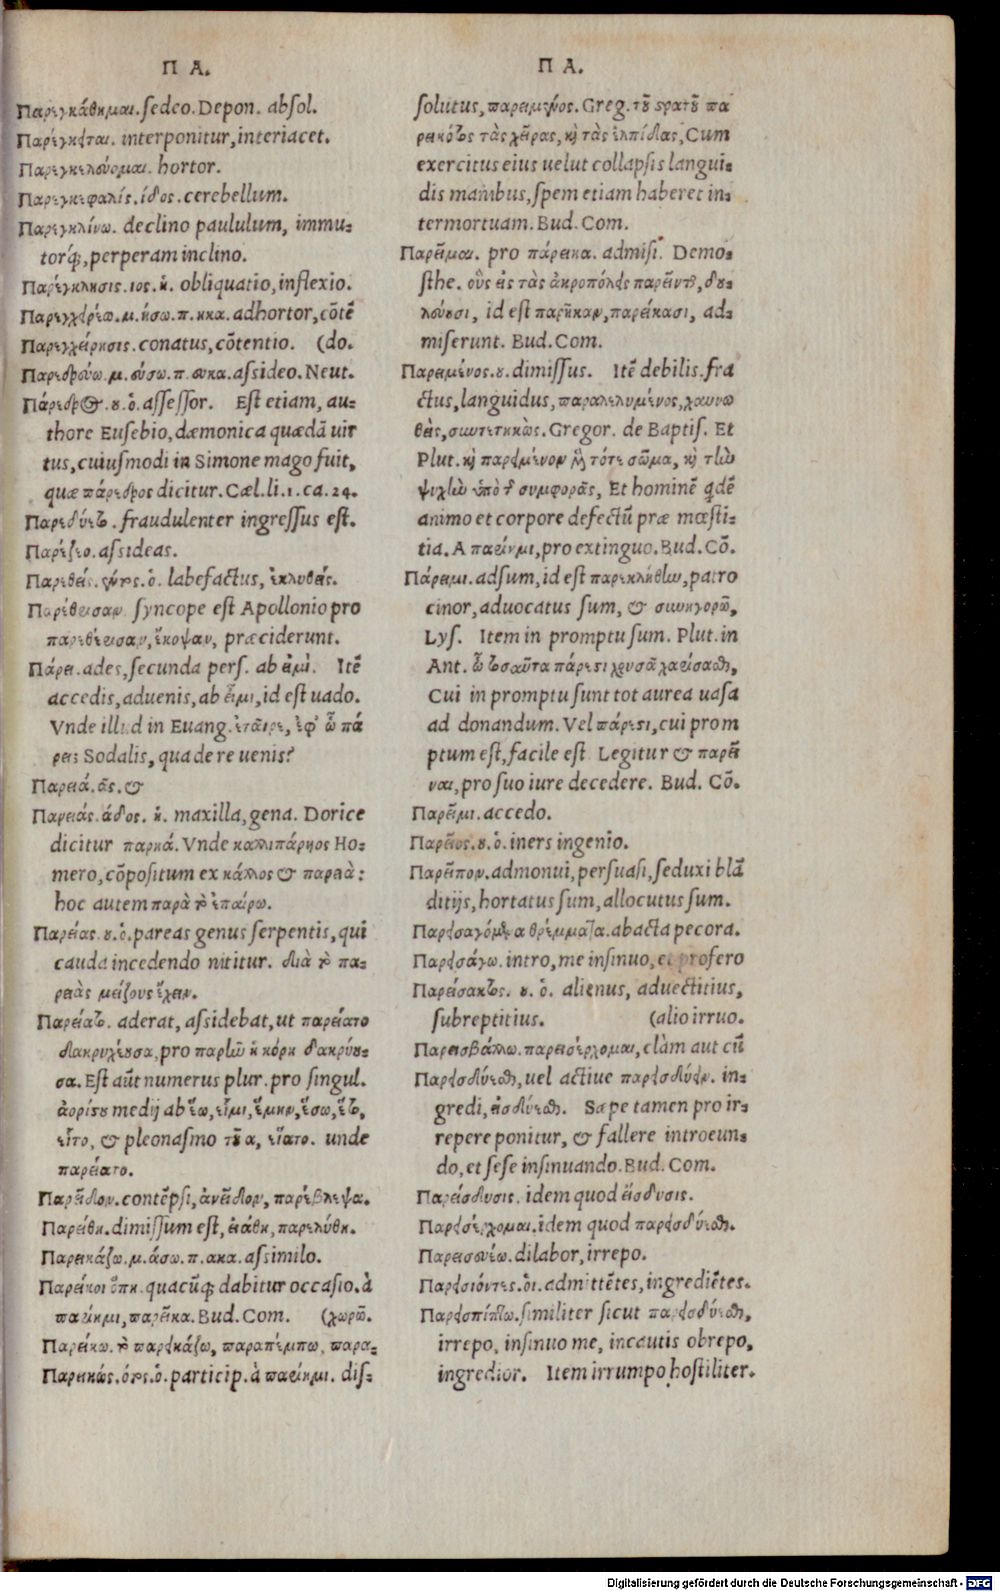 Π Α.
Παρεγκάθημαι. sedeo. Depon. absol.
Παρέγκειται. interponitur, interiacet.
Παρεγκελεύομαι. hortor.
Παρεγκεφαλίς. ίδος. cerebellum.
Παρεγκλίνω. declino paululum, immu-
torq́;, perperam inclino.
Παρέγκλησις. ιος. ἡ. obliquatio, inflexio.
Παρεγχειρέω. μ. ήσω. π. ηκα. adhortor, cōtē
Παρεγχείρησις. conatus, cōtentio. (do.
Παρεδρεύω. μ. εύσω. π. ευκα. assideo. Neut.
Πάρεδρος. ου. ὁ. assessor. Est etiam, au-
thore Eusebio, dæmonica quædā uir
tus, cuiusmodi in Simone mago fuit,
quæ πάρεδρος dicitur. Cæl. li. 1. ca. 24.
Παρεδύετο. fraudulenter ingressus est.
Παρέζεο. assideas.
Παρεθείς. έντος. ὁ. labefactus, ἐκλυθείς.
Παρέθεισαν. syncope est Apollonio pro
παρεθέεισαν, ἔκοψαν, præciderunt.
Πάρει. ades, secunda pers. ab εἰμὶ. Itē
accedis, aduenis, ab εἶμι, id est uado.
Vnde illud in Euang. ἑταῖρε, ἐφ' ᾧ πά
ρει; Sodalis, qua de re uenis?
Παρειά. ᾶς. &
Παρειάς. άδος. ἡ. maxilla, gena. Dorice
dicitur παρηά. Vnde καλλιπάρηος Ho-
mero, cōpositum ex κάλλος & παρειὰ:
hoc autem παρὰ τὸ ἐπαίρω.
Παρείας. ου. ὁ. pareas genus serpentis, qui
cauda incedendo nititur. διὰ τὸ πα-
ρειὰς μείζους ἔχειν.
Παρείατο. aderat, assidebat, ut παρείατο
δακρυχέουσα, pro παρῶ ἡ κόρη δακρύου-
σα. Est aūt numerus plur. pro singul.
ἀορίστου medij ab ἕω, εἷμι, ἕμην, ἕσω, ἕτο,
εἷτο, & pleonasmo τοῦ α, εἵατο. unde
παρείατο.
Παρεῖδον. contēpsi, ἀνεῖδον, παρέβλεψα.
Παρείθη. dimissum est, εἰάθη, παρελύθη.
Παρεικάζω. μ. άσω. π. ακα. assimilo.
Παρείκοι ὅπη. quacūq; dabitur occasio. à
παρίημι, παρεῖκα. Bud. Com. (χωρῶ.
Παρείκω. τὸ παρεικάζω, παραπέμπω, παρα-
Παρεικώς. ότος. ὁ. particip. à παρίημι. dis-
Π Α.
solutus, παρειμένος. Greg. τοῦ στρατοῦ πα
ρεικότος τὰς χεῖρας, καὶ τὰς ἐλπίδας, Cum
exercitus eius uelut collapsis langui-
dis manibus, spem etiam haberet in-
termortuam. Bud. Com.
Παρεῖμαι. pro πάρεικα. admisi. Demo-
sthe. οὓς εἰς τὰς ἀκροπόλεις παρεῖντο, δου-
λεύουσι, id est παρῆκαν, παρείκασι, ad-
miserunt. Bud. Com.
Παρειμένος. ου. dimissus. Itē debilis. fra
ctus, languidus, παραλελυμένος, χαυνω
θεὶς, συντετηκὼς. Gregor. de Baptis. Et
Plut. καὶ παρειμένον ἦν τότε σῶμα, καὶ τὴν
ψυχὴν ὑπὸ τ͂ συμφορᾶς, Et hominē q̄dē
animo et corpore defectū præ mœsti-
tia. A παρίημι, pro extinguo. Bud. Cō.
Πάρειμι. adsum, id est παρεκλήθην, patro
cinor, aduocatus sum, & συνηγορῶ,
Lys. Item in promptu sum. Plut. in
Ant. ᾧ τοσαῦτα πάρεστι χρυσᾶ χαρίσασθαι,
Cui in promptu sunt tot aurea uasa
ad donandum. Vel πάρεστι, cui prom
ptum est, facile est Legitur & παρεῖ
ναι, pro suo iure decedere. Bud. Cō.
Παρεῖμι. accedo.
Παρεῖος. ου. ὁ. iners ingenio.
Παρεῖπον. admonui, persuasi, seduxi blā
ditijs, hortatus sum, allocutus sum.
Παρεισαγόμενα θρέμματα. abacta pecora.
Παρεισάγω. intro, me insinuo, et profero
Παρείσακτος. ου. ὁ. alienus, aduectitius,
subreptitius. (alio irruo.
Παρεισβάλλω. παρεισέρχομαι, clàm aut cū
Παρεισδύεσθαι, uel actiue παρεισδύειν. in-
gredi, εἰσδύεσθαι. Sæpe tamen pro ir-
repere ponitur, & fallere introeun-
do, et sese insinuando. Bud. Com.
Παρείσδυσις. idem quod εἴσδυσις.
Παρεισέρχομαι. idem quod παρεισδύεσθαι.
Παρεισρέω. dilabor, irrepo.
Παρεισιόντες. οἱ. admittētes, ingrediētes.
Παρεισπίπτω. similiter sicut παρεισδύεσθαι,
irrepo, insinuo me, incautis obrepo,
ingredior. Item irrumpo hostiliter.
Digitalisierung gefördert durch die Deutsche Forschungsgemeinschaft - DFG